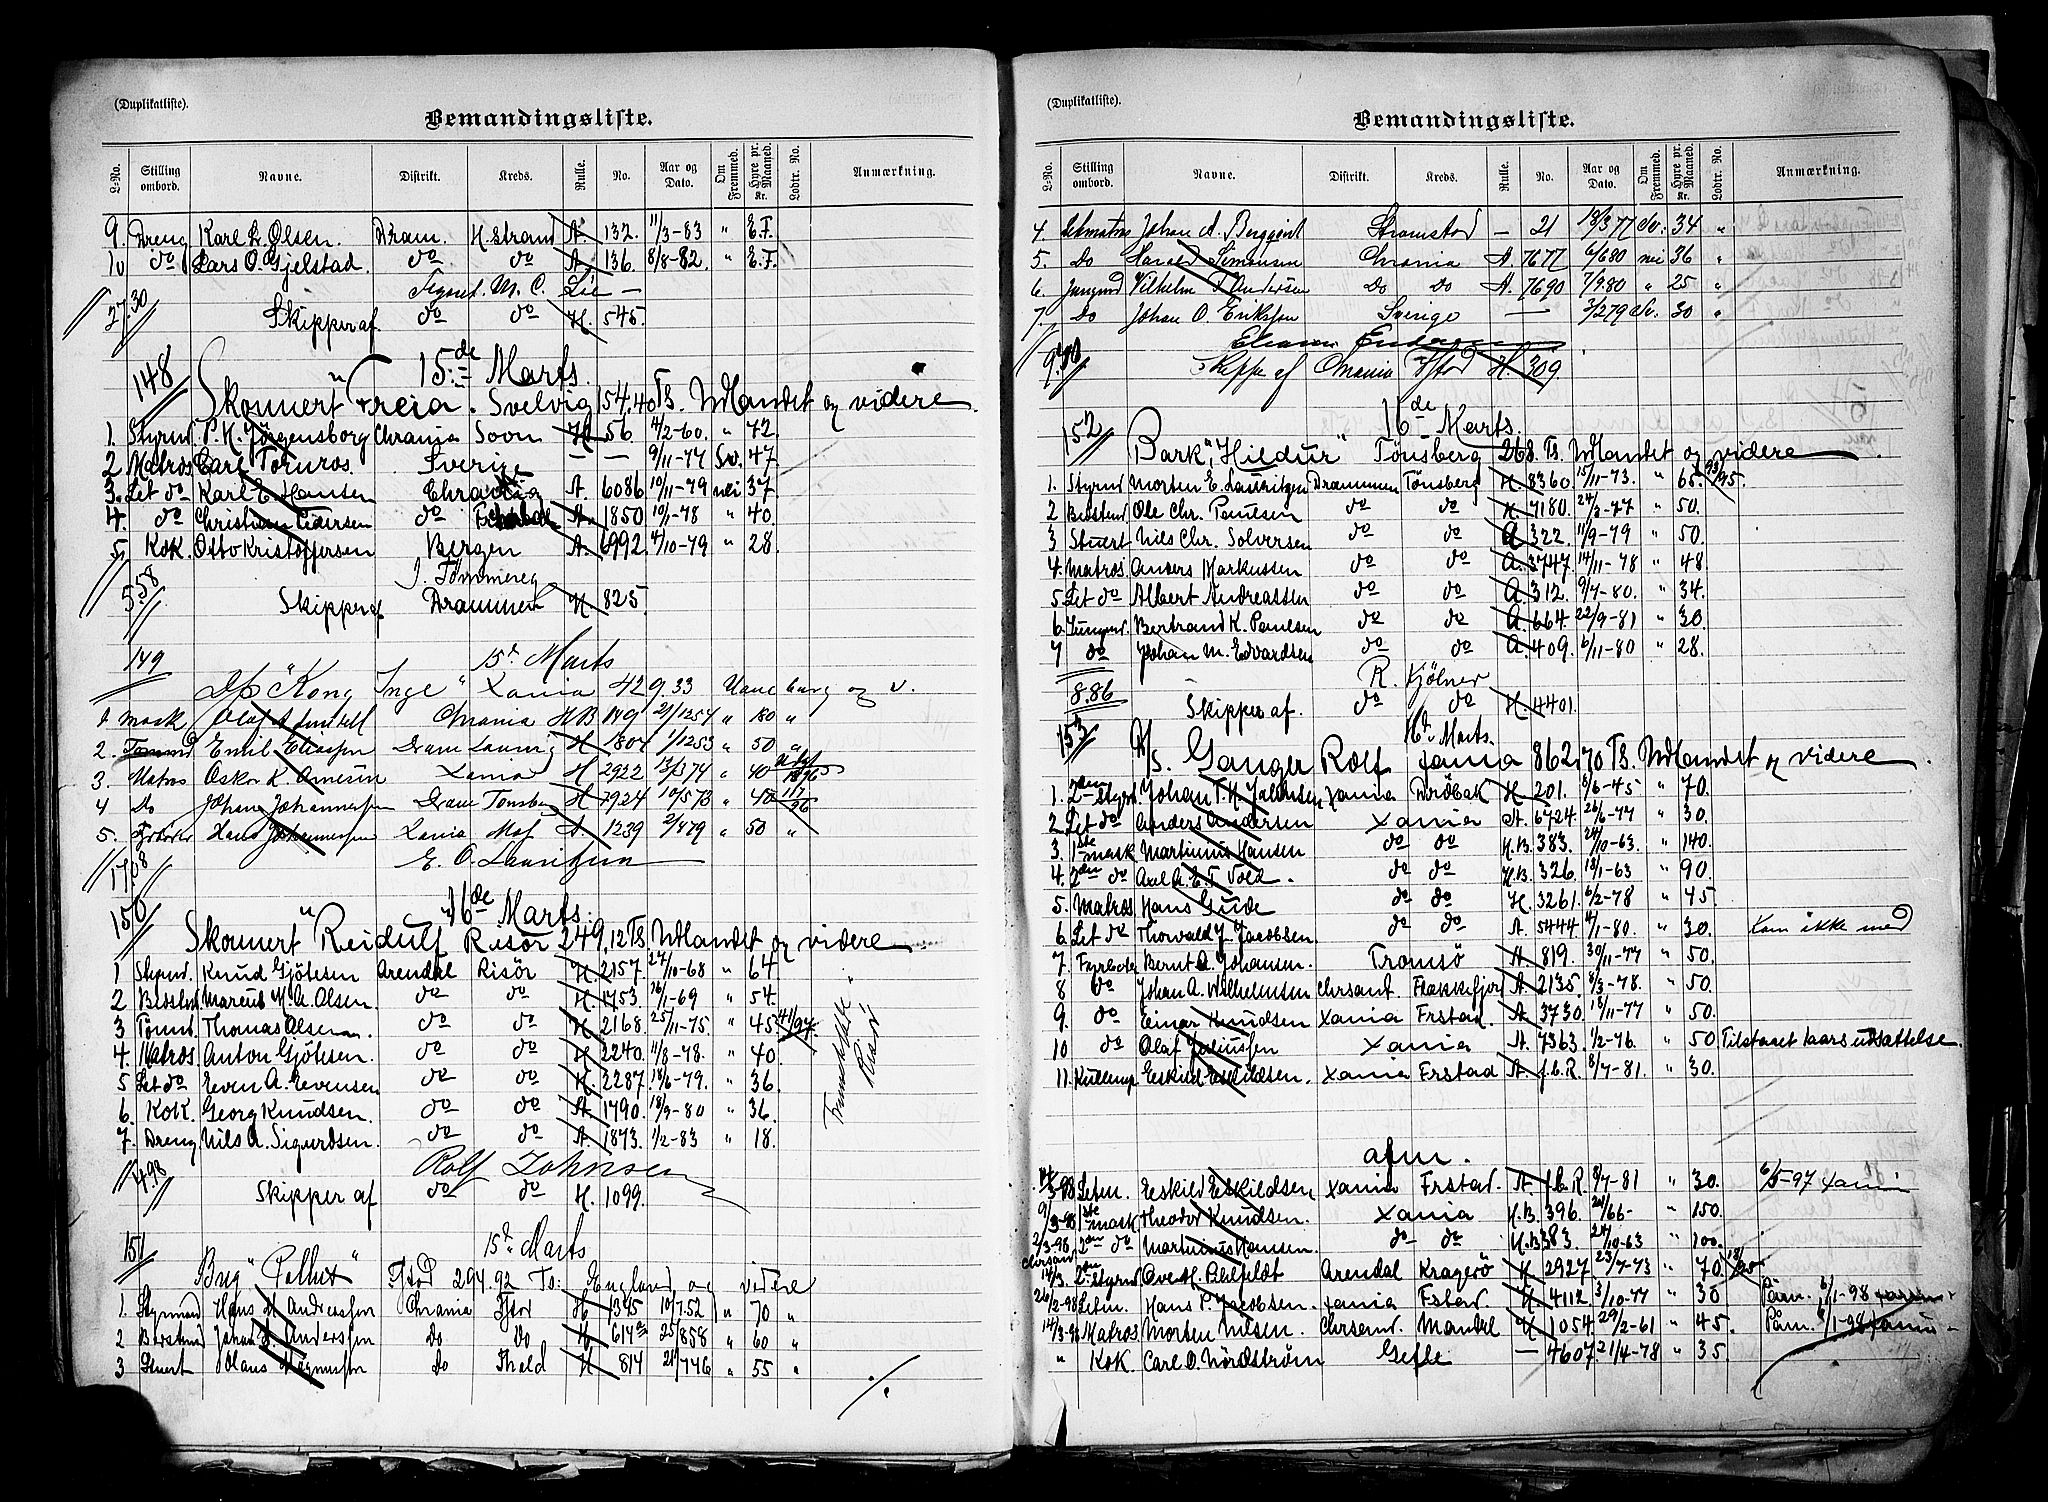 (Duplikatliste).
Bemandingsliste.
L-No. Stilling ombord. Navne. Distrikt. Kreds. Rulle. No. Aar og Dato. Om Fremmed. Hyre pr. Maaned. Kr. Lodtr. No. Anmærkning.
9. Dreng Karl L. Olsen. Dram. H.strand A. 132. 11/3-83 " E.F.
10 do Lars O. Gjelstad. do do A. 136. 8/8-82. " E.F.
M. C.
27.30 Skipper af do do H. 545.
148 15de Marts.
Skonnert "Freia. Svelvig 154,40 Ts. Udlandet og videre
1. Styrmd. P. H. Jörgensborg Chrania Sovn H. 56. 4/2-60. " 72.
2 Matros Carl Tornros. Sverige — — 9/11-77 Sv. 47.
3. Let do Karl E. Hansen Chrania A. 6086 19/11-79 nei 37
4. do Christian Pedersen do A. 1850 10/1-78 " 40.
5 Kok. Otto Kristoffersen Bergen A. 6992 4/10-79 " 28.
5.58 Skipper af Drammen H. 825.
149 15d Marts
Dp "Kong Inge" Xania 429.33 og v.
1 Mask Olaf Chrania HB 149 21/1254 " 180 "
2. Emil Eliassen Dram H 1804 1/1253 " 50 "
3. Matros Oskar K. Arnesen Xania H 2922 13/374 " 40
4 Do Johan Johannessen Dram Tønsbg H 1924 10/573 " 40 117/96
5. Fyrbøder Hans Johannessen Xania A 1239 2/879 " 50 "
17.08 E. O. Lauritzen
150 16de Marts.
Skonnert "Reidulf" Risör 249,12 Ts. Udlandet og videre
1 Styrmd. Knud Gjötesen Arendal Risör H. 2157 27/10-68 " 64
2 Bedstmd Marcus M. A. Olsen do do H. 1753. 26/1-69 " 54.
3 Tömmd. Thomas Olsen do do H. 2168. 25/11-75. " 45 41/97.
4. Matros Anton Gjötesen. do do H. 2240. 11/8-78. " 40.
5 Let do Even A. Evensen do do H. 2287. 18/6-79. " 36.
6. Kok Georg Knudsen. do do A. 1790. 18/9-80 " 36.
7. Dreng Nils A. Sigurdsen. do do A. 1873. 1/2-83 " 18.
Risör
14.98 Rolf Johnsen
Skipper af do do H. 1099.
151 15d Marts
Brig "Pollux" Fstad 294.92 Ts: England og videre
1. Styrmand Hans M Andreassen Chrania H 1345 10/7.52 " 70 "
2 Johan S. Anderssen do do H 614 25/858 " 60 "
3 Stuert Hans Magnussen do Fhald H 814 21/746 " 55 "
./.
(Duplikatliste).
Bemandingsliste.
L-No. Stilling ombord. Navne. Distrikt. Kreds. Rulle. No. Aar og Dato. Om Fremmed. Hyre pr. Maaned. Kr. Lodtr. No. Anmærkning.
4. Letmatros Johan A. Berggvist Strømstad — 21 18/377 Sv. 34 "
5. Do Harald Simonsen Chrania A. 7677 6/680 nei 36 "
6. Jungmd Vilhelm Andersen Do Do A. 7690 7/980 " 25 "
7. Do Johan O. Erikssen Sverige — 3/279 Sv. 30 "
Skipper af Chrania Fstad H. 309.
152 16de Marts.
Bark "Hildur" Tønsberg 268. Ts. Udlandet og videre
1. Styrmd Morten E. Lauritzen Drammen Tønsberg H. 8360 15/11-73. " 65. 93/95.
2 Bedstmd Ole Chr. Paulsen do do H. 7180. 24/2-77 " 50.
3 Stuert Nils Chr. Solversen do do A. 322. 11/9-79 " 50.
4. Matros. Anders Markussen do do A. 3747. 14/11-78 " 48
5. Let do Albert Andreassen do do A. 312. 9/7-80. " 34.
6. Jungmd. Bertrand K. Paulsen do do A. 664. 22/9-81 " 30
7 do Johan M. Edvardsen do do A. 409. 6/11-80 " 28.
R. Kjölner
8.86 Skipper af. do do H. 4401.
153 16d Marts.
D/s. Ganger Rolf Xania 862,70 Ts. Udlandet og videre
1. 2den Styrd. Johan T. H. Johansen Xania Dröbak H. 201. 8/6-45 " 70.
2. Let do Anders Andersen Xania A. 6724. 26/6-77 " 30.
3. 1ste mask Martinius Hansen do do H.B. 383. 24/10-63. " 140.
4. 2den do Axel A. E. T. Vold. do do H.B. 326. 13/1-63 " 90.
5. Matros Hans Gude do do H. 3261. 6/2-78 " 45.
6. Let do Thorvald J. Jacobsen. do do A. 5444 4/1-80. " 30. Kom ikke med
7. Fyrböter Bernt A. Johansen. Tromsö A. 819. 30/11-77 " 50.
8 do Johan A. Wilhelmsen Chrsant. Flækkefjord A. 2135. 8/3-78. " 50.
9. do Einar Knudsen Xania Frstad. A. 3730. 18/11-77 " 50.
10 do Olaf Juliussen Xania A. 7363. 1/2-76. " 50 Tilstaaet 1 aars udsættelse.
11. Kullemp. Eskild Eskildsen. Xania Frstad A. f.b.R. 8/7-81. " 30.
afm.
14/3-98 Letm. Eskild Eskildsen Xania Frstad. A. f.b.R. 8/7-81 " 30. 6/5-97 Xania
9/3-98 1ste mask Theodor Knudsen. Xania H.B. 396. 20/66- " 150.
2/3-98 2den do Martinius Hansen. do do H.B. 383. 24/10-63 " 100.
Chrsand 14/3. 2. Styrmd Ove H. Pihlfeldt Arendal Kragerö H 2927 23/7-73 " 70
26/2-98 Letm. Hans P. Jacobsen. Xania Fstad. H. 4112. 3/10-77 " 30 Paam. 4/1-98 Xania
14/3-98 Matros Morten Nilsen. Chrsand. Mandal H 1054. 29/2-61 " 45. Paam. 4/1-98 Xania
" Kok Carl O. Nordström Gefle — 4607. 21/4-78 " 35.